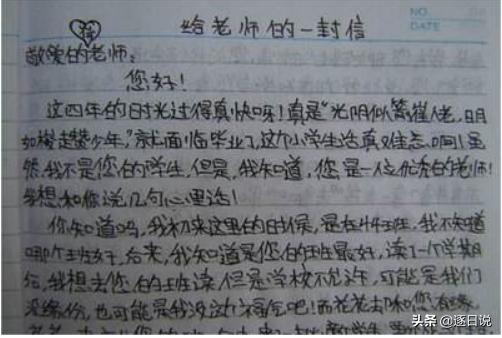 给老师的一封信
NO.
DATE
敬爱的老师:
您好!
这四年的时光过得真快呀!真是“光阴似箭催人老,日月
如梭趱少年”,就面临毕业了,这个小学生活真难忘啊!虽
然,我不是您的学生,但是,我知道,您是一位优秀的老师!
我想和你说几句心里话!
你知道吗,我初来这里的时候,是在班,我不知道
哪个班好,后来,我知道是您的班最好,读了一个学期
后,我想去您的班读,但是学校不允许,可能是我们
没缘份,也可能是我没这个福气吧!而花花却和您有缘,
头条 @逐日说